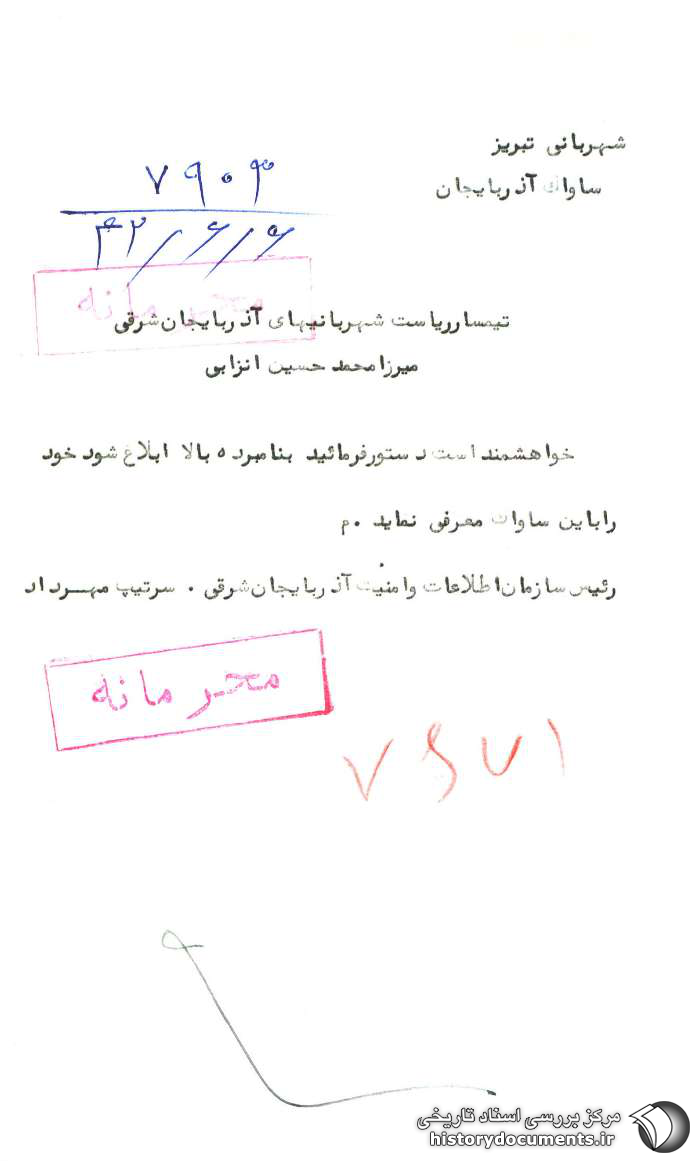 شهربانی تبریز
ساواك آذربایجان
۷۹۰۳
۴۲/۶/۶
محرمانه
تیمسارریاست شهربانیهای آذربایجان‌شرقی
میرزامحمد حسین انزابی
خواهشمند است دستورفرمائید بنامبرده بالا ابلاغ شود خود
راباین ساواك معرفی نماید .م
رئیس سازمان اطلاعات وامنیت آذربایجان‌شرقی . سرتیپ مهـرداد
محرمانه
مرکز بررسی اسناد تاریخی
historydocuments.ir